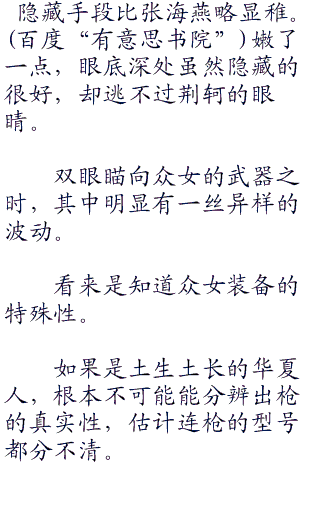 隐藏手段比张海燕略显稚。
(百度“有意思书院”)嫩了
一点，眼底深处虽然隐藏的
很好，却逃不过荆轲的眼
睛。
双眼瞄向众女的武器之
时，其中明显有一丝异样的
波动。
看来是知道众女装备的
特殊性。
如果是土生土长的华夏
人，根本不可能能分辨出枪
的真实性，估计连枪的型号
都分不清。